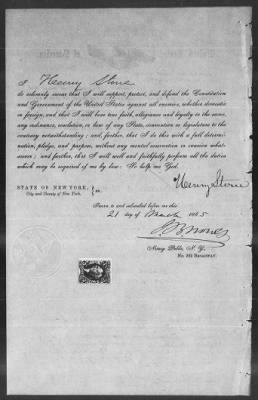 I Henry Stone
do solemnly swear that I will support, protect, and defend the Constitution
and Government of the United States against all enemies, whether domestic
or foreign, and that I will bear true faith, allegiance and loyalty to the same,
any ordinance, resolution, or law of any State, convention or legislature to the
contrary notwithstanding; and, further, that I do this with a full determi-
nation, pledge, and purpose, without any mental reservation or evasion what-
soever; and further, that I will well and faithfully perform all the duties
which may be required of me by law: So help me God.
Henry Stone
STATE OF NEW YORK,
City and County of New York. } ss.
Sworn to and subscribed before me this
21 day of March 1865
Notary Public, N. Y.
No. BROADWAY.